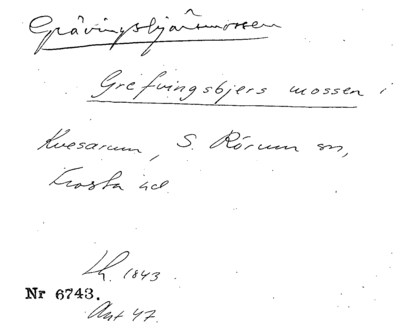 Grävingsbjärsmossen
Grefvingsbjers mossen i
Kvesarum, S. Rörum sn,
Frosta hd
Lh. 1843
Nr 6743.
Ant 47